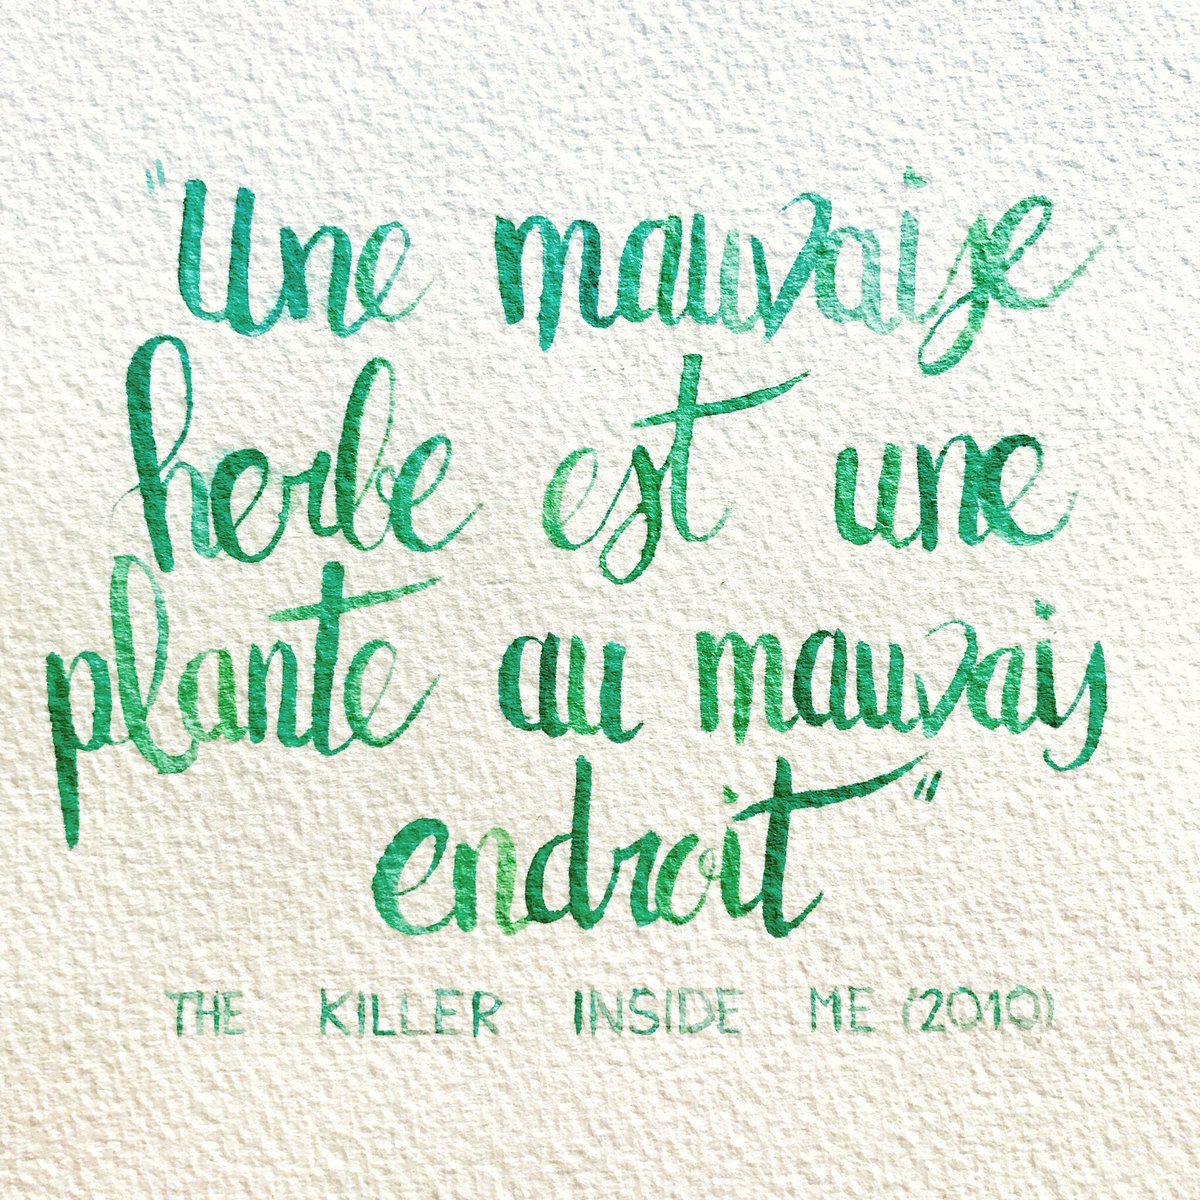 "Une mauvaise
herbe est une
plante au mauvais
endroit"
THE KILLER INSIDE ME (2010)